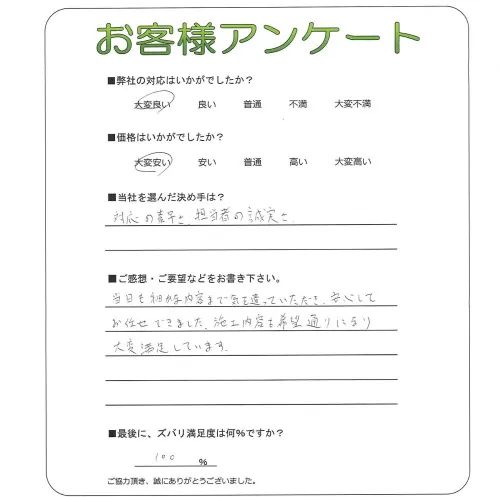 お客様アンケート
■弊社の対応はいかがでしたか？
大変良い 良い 普通 不満 大変不満
■価格はいかがでしたか？
大変安い 安い 普通 高い 大変高い
■当社を選んだ決め手は？
対応の素早さ、担当者の誠実さ
■ご感想・ご要望などをお書き下さい。
当日も細かな内容まで気を遣っていただき、安心して
お任せできました。施工内容も希望通りになり
大変満足しています。
■最後に、ズバリ満足度は何%ですか？
100 %
ご協力頂き、誠にありがとうございました。